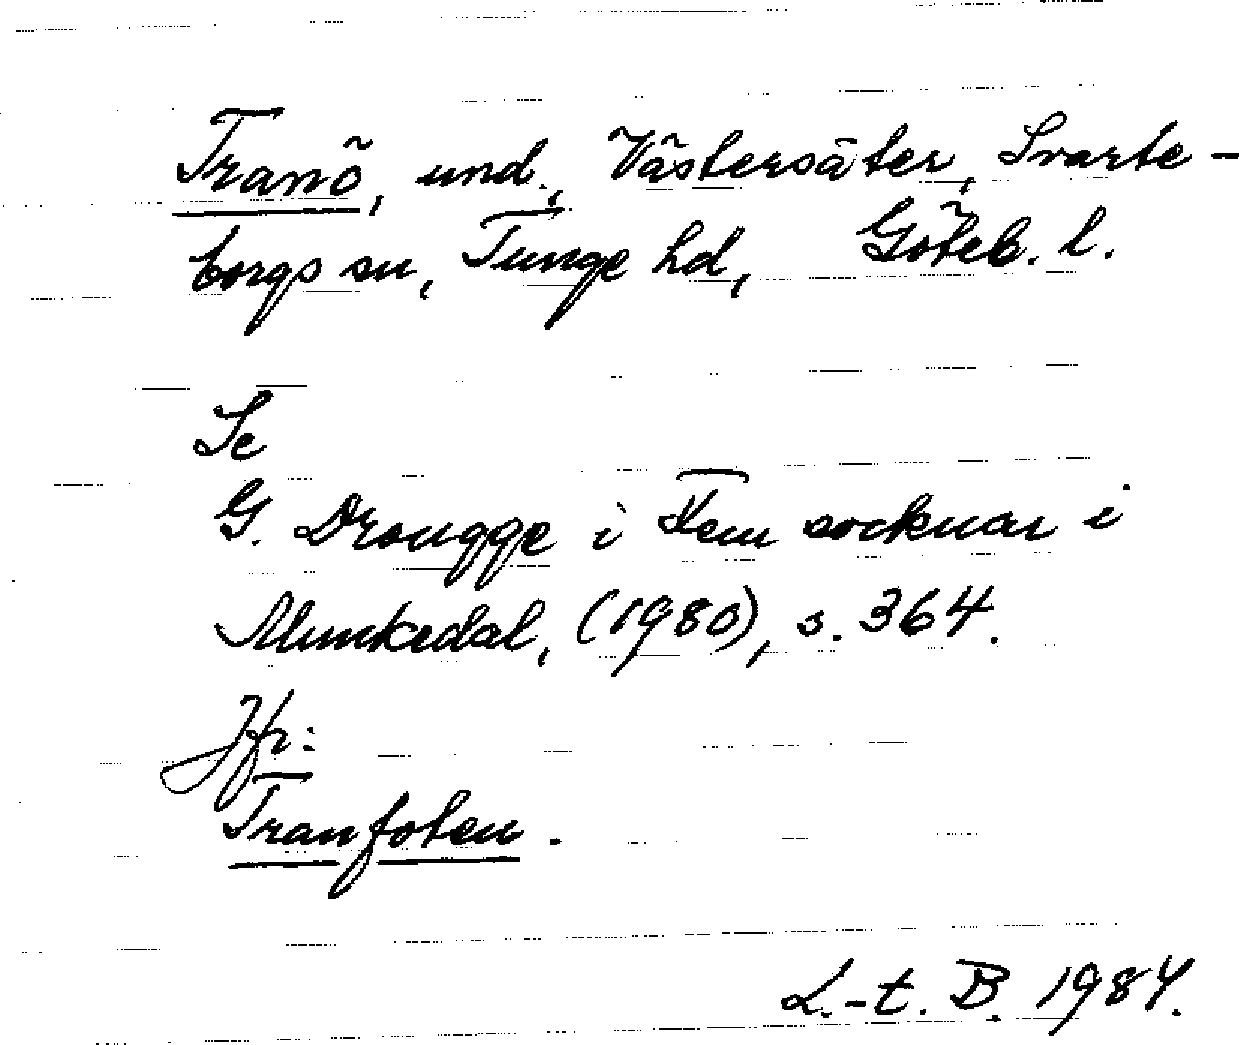 Tranö, und., Västersäter, Svarte-
borgs sn, Tunge hd, Göteb. l.
Se
G. Drougge i Fem socknar i
Munkedal, (1980), s. 364.
Jfr:
Tranfoten.
L.-t. B. 1984.